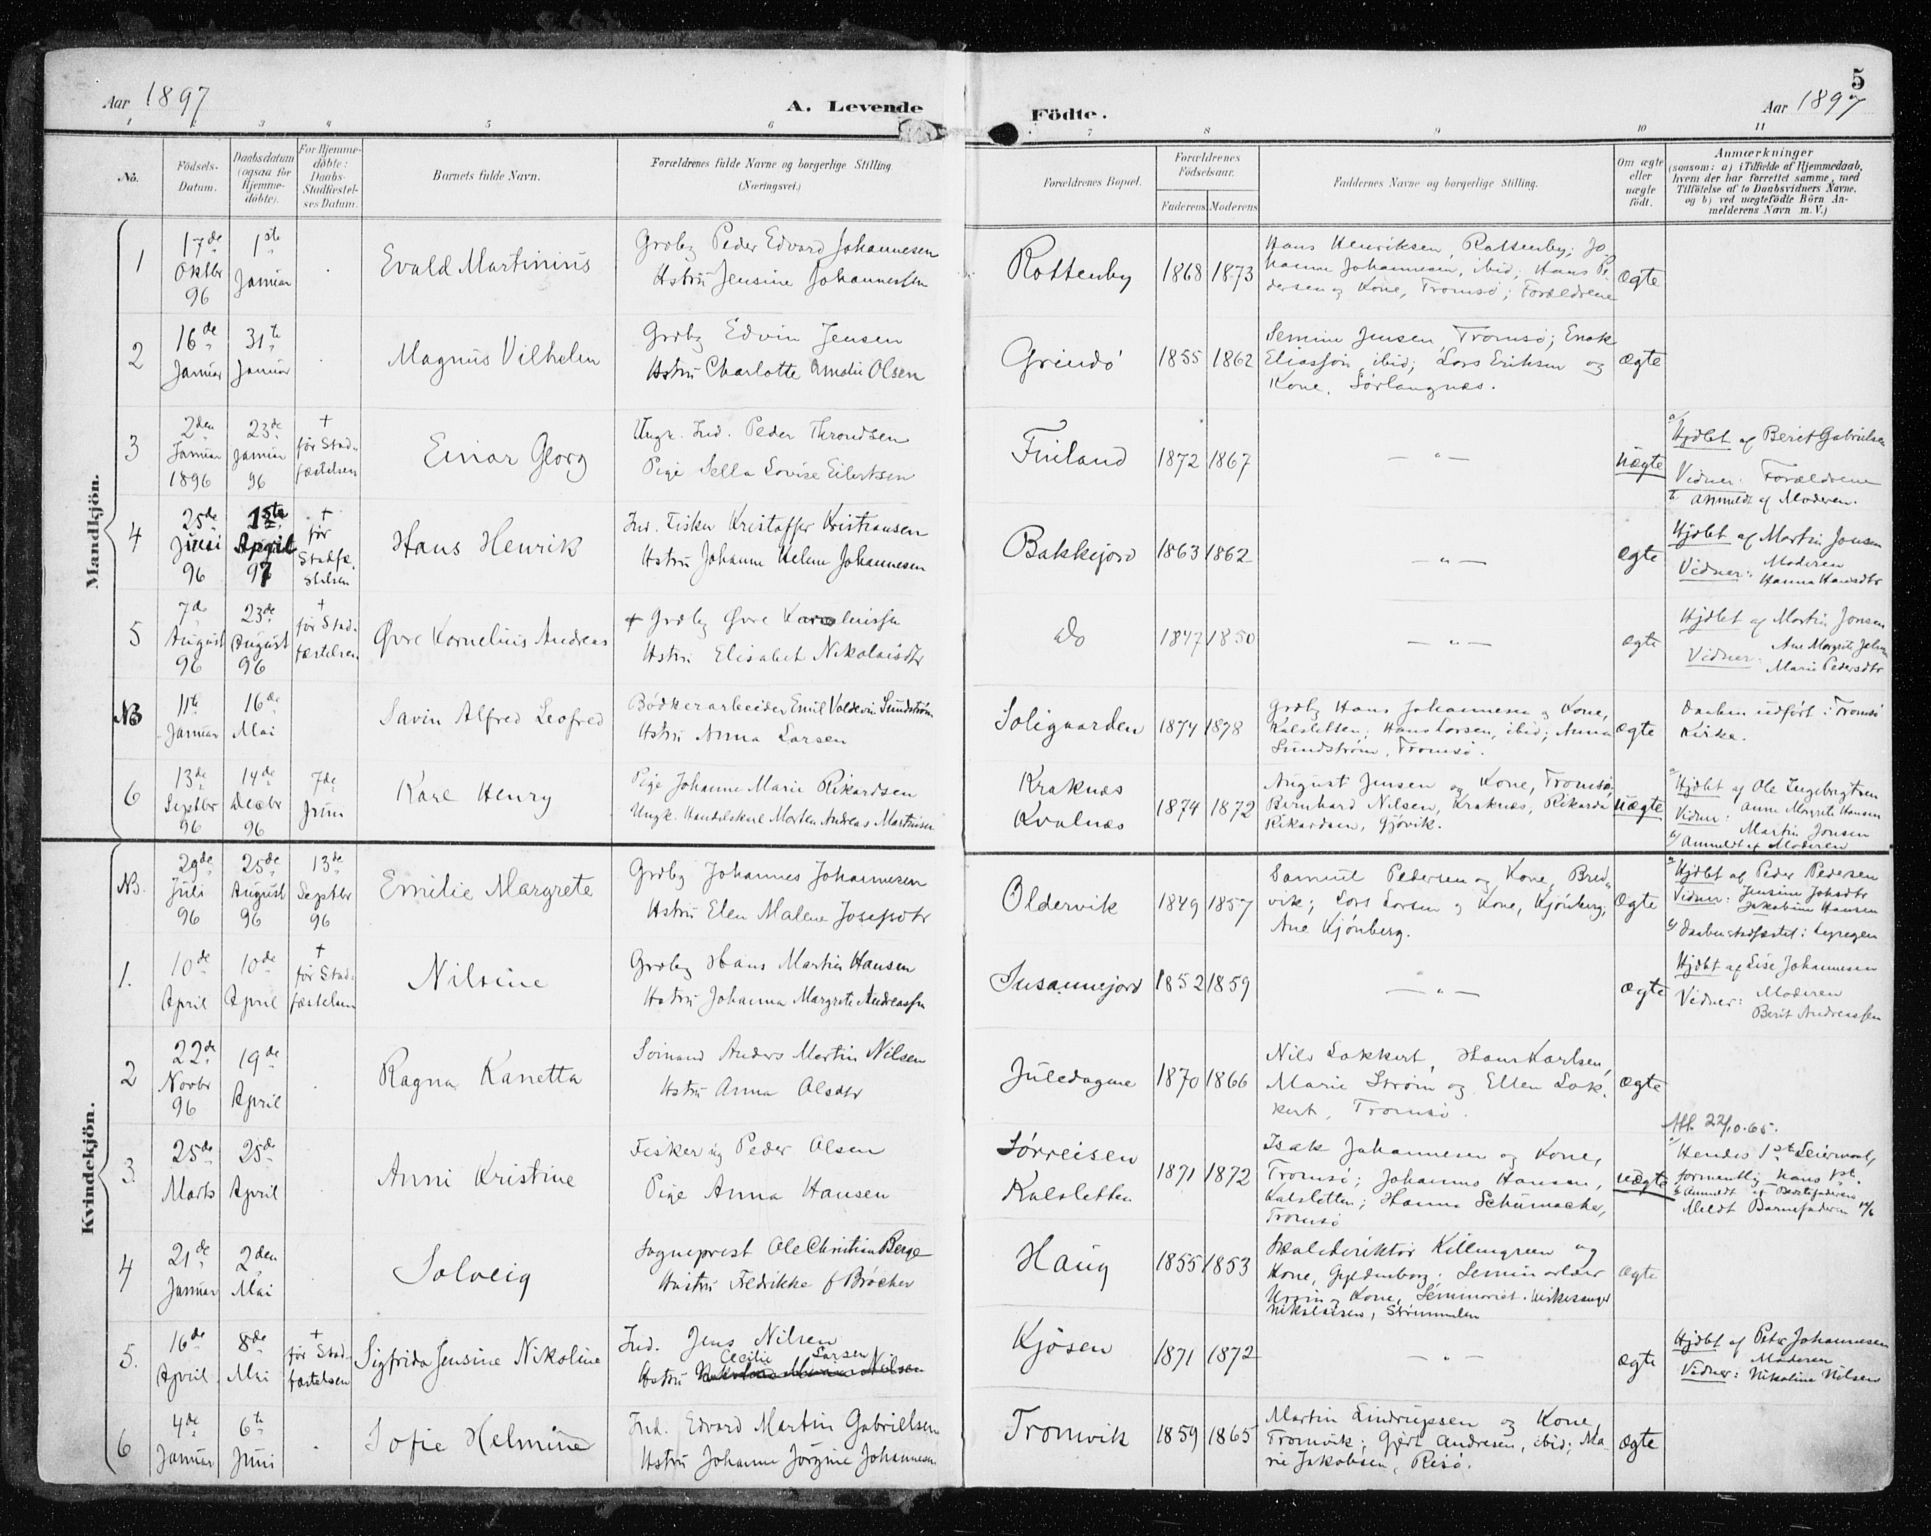 Aar 1897
A. Levende
Födte.
Aar 1897
5
1 2 3 4 5 6 7 8 9 10 11
No.
Födsels-
Datum.
Daabsdatum
(ogsaa for
Hjemme-
döbte).
For Hjemme-
döbte:
Daabs-
Stadfæstel-
ses Datum.
Barnets fulde Navn.
Forældrenes fulde Navne og borgerlige Stilling
(Næringsvei.)
Forældrenes Bopæl.
Forældrenes
Födselsaar.
Faderens Moderens
Faddernes Navne og borgerlige Stilling.
Om ægte
eller
uægte
födt.
Anmærkninger
(saasom: a) i Tilfælde af Hjemmedaab,
hvem der har forrettet samme, med
Tilföielse af to Daabsvidners Navne,
og b) ved uægtefödte Börn An-
melderens Navn m. V.)
Mandkjön.
1
17de
Oktbr
96
1ste
Januar
Evald Martinius
Grdbr Peder Edvard Johannesen
Hstru Jensine Johannessen
Rottenby
1868 1873
Hans Henriksen, Rottenby; Jo-
hanne Johannesen, ibid; Hans Pe-
dersen og Kone, Tromsö; Forældrene
ægte
2
16de
Januar
31te
Januar
Magnus Vilhelm
Grdbr Edvin Jensen
Hstru Charlotte Amalie Olsen
Grindö
1855 1862
Semine Jensen, Tromsö; Enok
Eliassön, ibid; Lars Eriksen og
Kone, Sörlangnæs.
ægte
3
2den
Januar
1896
23de
Januar
96
+
før Stad-
fæstelsen
Einar Georg
Ungk. Ind. Peder Throndsen
Pige Sella Lovise Eilertsen
Finland
1872 1867
— " —
uægte
a) Hjdbt af Berit Gabrielsen
Vidner: Forældrene
b) Anmeldt af Moderen.
4
25de
Juni
96
1ste
April
97
+
før
Stadfæ-
stelsen
Hans Henrik
Ind. Fisker Kristoffer Kristiansen
Hstru Johanne Helene Johannesen
Bakkejord
1863 1862
— " —
ægte
Hjdbt af Martin Jonsen
Vidner: Moderen
Hanna Hansdtr
5
7de
August
96
23de
August
96
+
før Stad-
fæstelsen
Øvre Kornelius Andreas
+ Grdbr Øvre Korneliussen
Hstru Elisabet Nikolaisdtr
Do
1847 1850
— " —
ægte
Hjdbt af Martin Jonsen
Vidner: Ane Margrete Johnsen
Marie Pedersdtr
NB
11te
Januar
16de
Mai
Savin Alfred Leofred
Bödkerarbeider Emil Valdevin Sundström
Hstru Anna Larsen
Soligaarden
1874 1878
Grdbr Hans Johannesen og Kone,
Kalsletten; Hans Larsen, ibid; Anna
Sundström, Tromsö.
ægte
Daaben udført i Tromsö
Kirke.
6
13de
Septbr
96
14de
Decbr
96
7de
Juni
Kare Henry
Pige Johanne Marie Rikardsen
Ungk. Handelskarl Morten Andreas Martinsen
Kraknæs
Kvalnæs
1874 1872
August Jensen og Kone, Tromsö;
Bernhard Nilsen, Kraknæs, Rikarda
Rikardsen, Gjövik.
uægte
a) Hjdbt af Ole Ingebrigtsen
Vidner: Anne Margrete Hansen
Martin Jonsen
b) Anmeldt af Moderen
Kvindekjön.
NB.
29de
Juli
96
25de
August
96
13de
Septbr
96
Emilie Margrete
Grdbr Johannes Johannesen
Hstru Elen Malene Josefsdtr
Oldervik
1849 1857
Samuel Pedersen og Kone, Bred-
vik; Lars Larsen og Kone, Kjönberg;
Ane Kjönberg.
ægte
a) Hjdbt af Peder Pedersen
Vidner: Jensine Johsdtr
Jakobine Hansen
b) Daaben stadfæstet i Lyngen
1.
10de
April
10de
April
+
før Stad-
fæstelsen
Nilsine
Grdbr Hans Martin Hansen
Hstru Johanna Margrete Andreassen
Susannejord
1852 1859
— " —
ægte
Hjdbt af Lise Johannesen
Vidner: Moderen
Berit Andreassen
2
22de
Novbr
96
19de
April
Ragna Kanetta
Sömand Anders Martin Nilsen
Hstru Anna Olsdtr
Juledagene
1870 1866
Nils Lokkert, Hans Karlsen,
Marie Ström og Ellen Lok-
kert, Tromsö.
ægte
3
25de
Marts
25de
April
Anni Kristine
Fisker ug Peder Olsen
Pige Anna Hansen
Sörreisen
Kalsletten
1871 1872
Isak Johannesen og Kone,
Tromsö; Johannes Hansen,
Kalsletten; Hanna Schumacher,
Tromsö
uægte
Att. 22/10.65.
a) Hendes 1st Leiermaal,
formentlig hans 1st.
b) Anmeldt af Bedstefaderen
Meldt Barnefaderen
4
21de
Januar
2den
Mai
Solveig
Sogneprest Ole Christian Berge
Hustru Fredrikke f Bröcher
Haug
1855 1853
Skoledirektör Killengreen og
Kone, Gyldenborg; Seminarlærer
og Kone, Seminariet. Kirkesanger
Nikolaisen, Strimmelen
ægte
5.
16de
April
8de
Mai
+
før Stad-
fæstelsen
Sigfrida Jensine Nikoline
Ind. Jens Nilsen
Cecilie Larsen
Hstru
Kjösen
1871 1872
— " —
ægte
Hjdbt af Peter Johannesen
Vidner: Moderen
Nikoline Nilsen
6
4de
Januar
6te
Juni
Sofie Helmine
Ind. Edvard Martin Gabrielsen
Hstru Johanne Jörgine Johannesen
Tromvik
1859 1865
Martin Lindrupsen og Kone,
Tromvik; Gjert Andresen, ibid; Ma-
rie Jakobsen, Risö.
ægte